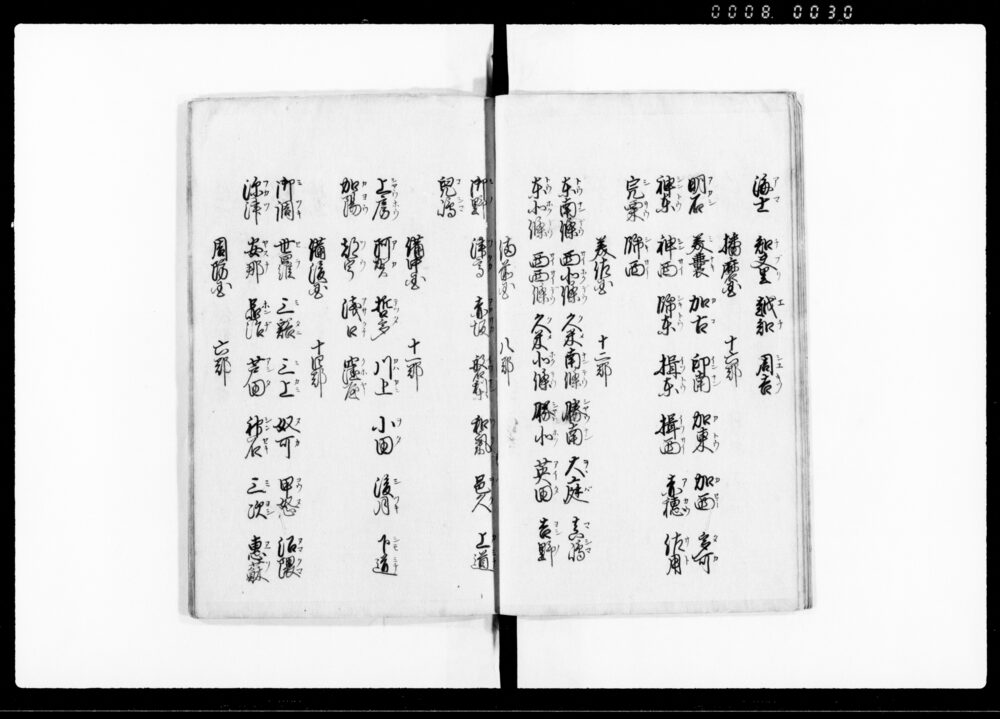 0008 0030
海士 知夫里 越知 周吉
播磨国 十六郡
明石 美嚢 加古 印南 加東 加西 多可
神東 神西 飾東 揖東 揖西 赤穂 佐用
完粟 飾西
美作国 十二郡
東南條 西北條 久米南條 勝南 大庭 真嶋
東北條 西西條 久米北條 勝北 英田 吉野
備前国 八郡
御野 津高 赤坂 磐梨 和氣 邑久 上道
兒嶋
備中国 十一郡
上房 阿賀 哲多 川上 小田 後月 下道
加陽 都宇 浅口 窪屋
備後国 十四郡
御調 世羅 三谿 三上 奴可 甲怒 沼隈
深津 安那 品治 芦田 神石 三次 恵蘇
周防国 六郡